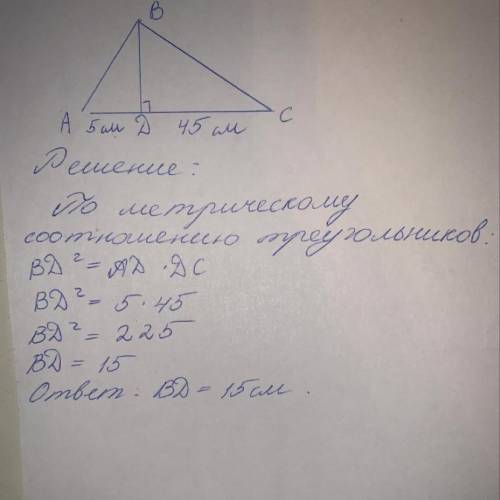 B
A 5см D 45 см C
Решение:
По метрическому
соотношению треугольников:
BD² = AD · DC
BD² = 5 · 45
BD² = 225
BD = 15
Ответ: BD = 15см.